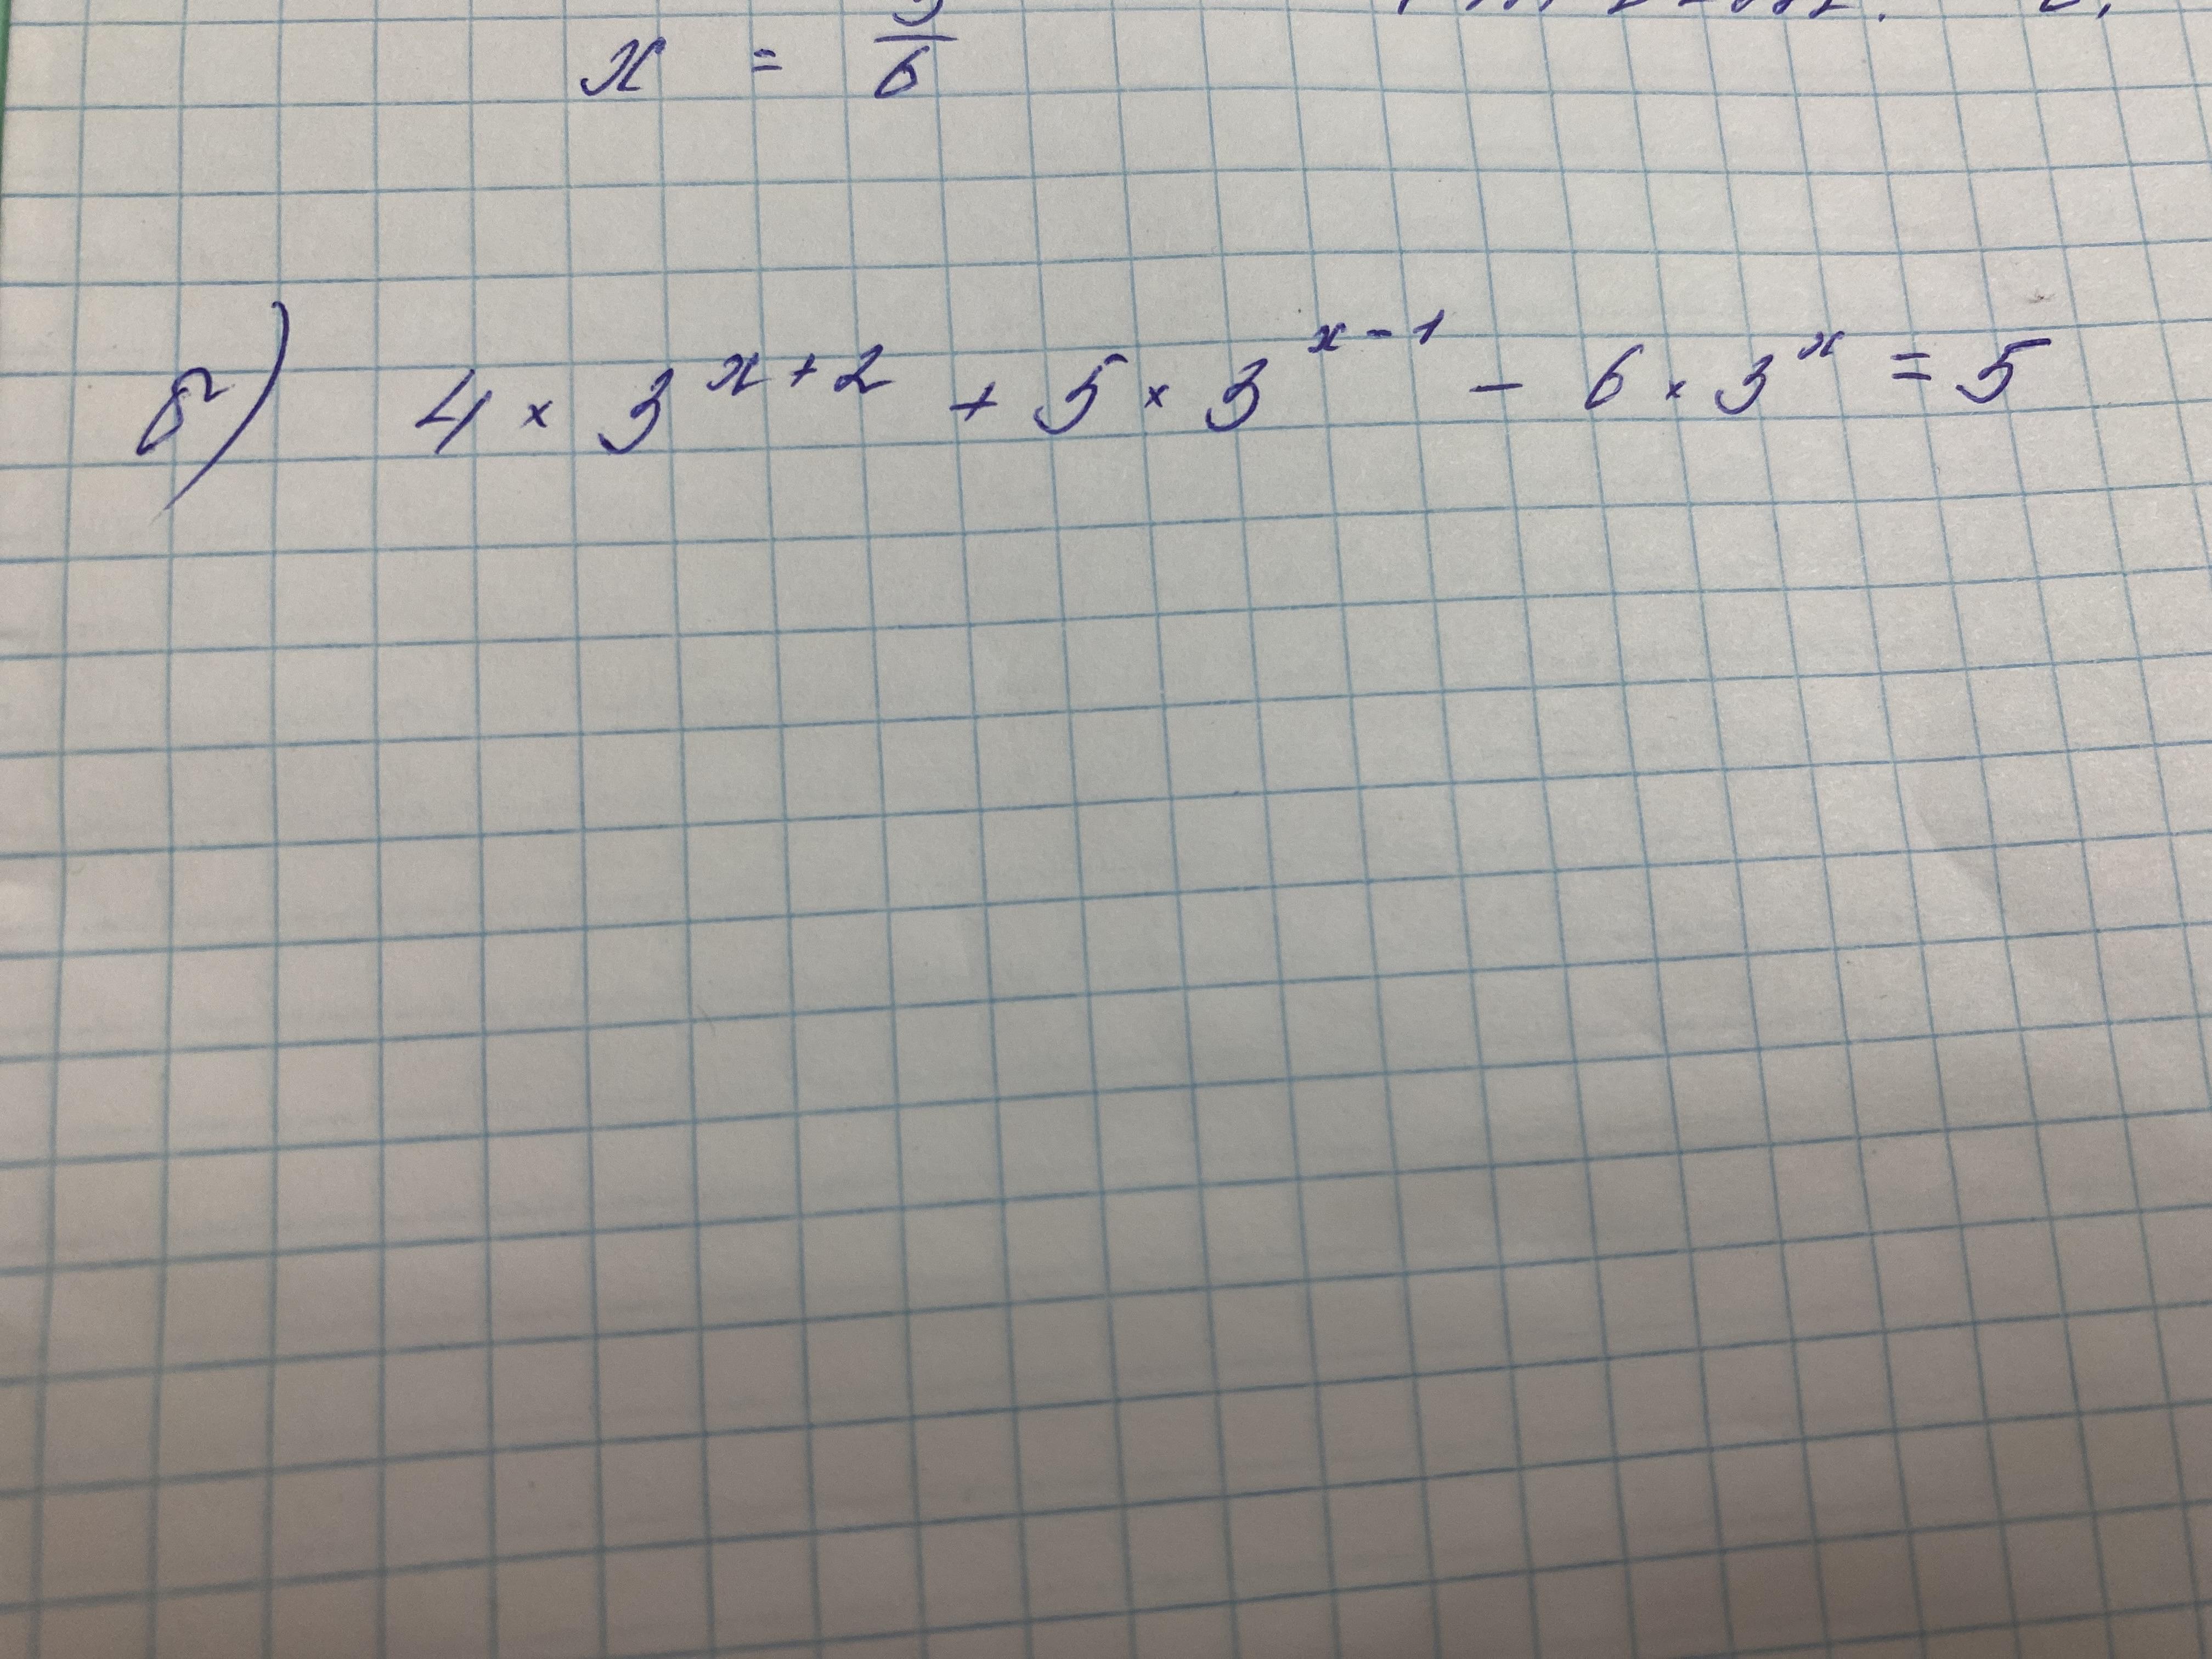 x = 5/6
8) 4 × 3^{x+2} + 5 × 3^{x-1} - 6 × 3^x = 5